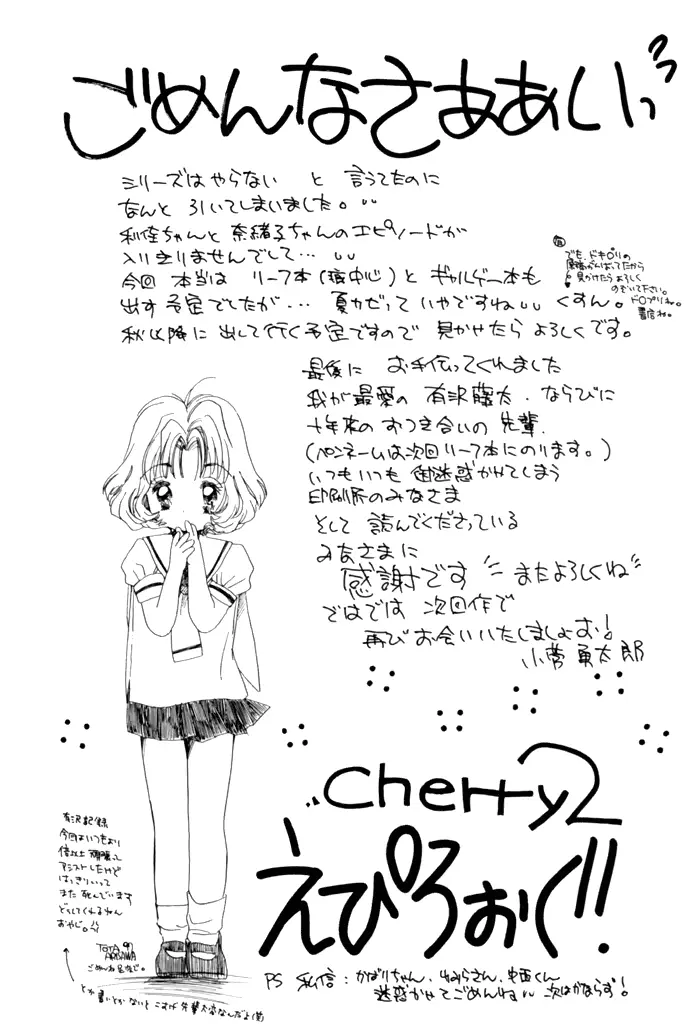 ごめんなさああいっ
シリーズはやらない と 言うてたのに
なんと 引いてしまいました。
利佳ちゃんと奈緒子ちゃんのエピソードが
入りきりませんでして…
今回 本当は リーフ本(痕中心)と ギャルゲー本も
出す予定でしたが… 夏カゼって いやですね くすん。
秋以降に出して行く予定ですので 見かけたら よろしくです。
でも、ドキプリの
見かけたらよろしく
のぞいて下さい。
最後に お手伝ってくれました
我が最愛の 有沢藤太、ならびに
十年来のおつき合いの 先輩、
(ペンネームは次回リーフ本にのります。)
いつもいつも 御迷惑かけてしまう
印刷所のみなさま
そして 読んでくださっている
みなさまに
感謝です またよろしくね
ではでは 次回作で
再び お会いいたしましょお!
小菅勇太郎
cherry2
えぴろおぐ!!
有沢記録
今回はいつもより
倍以上 頑張って
アシストしたけど
はっきりいって
また 死んでいます
どうしてくれるねん
おやじ。
TOTA ARISAWA
ごめんね 足まで。
とか書いとかないと こすげ先輩大変なんだよ
PS 私信:かばりちゃん、ゆみらさん、中西くん
迷惑かけてごめんね 次はかならず!